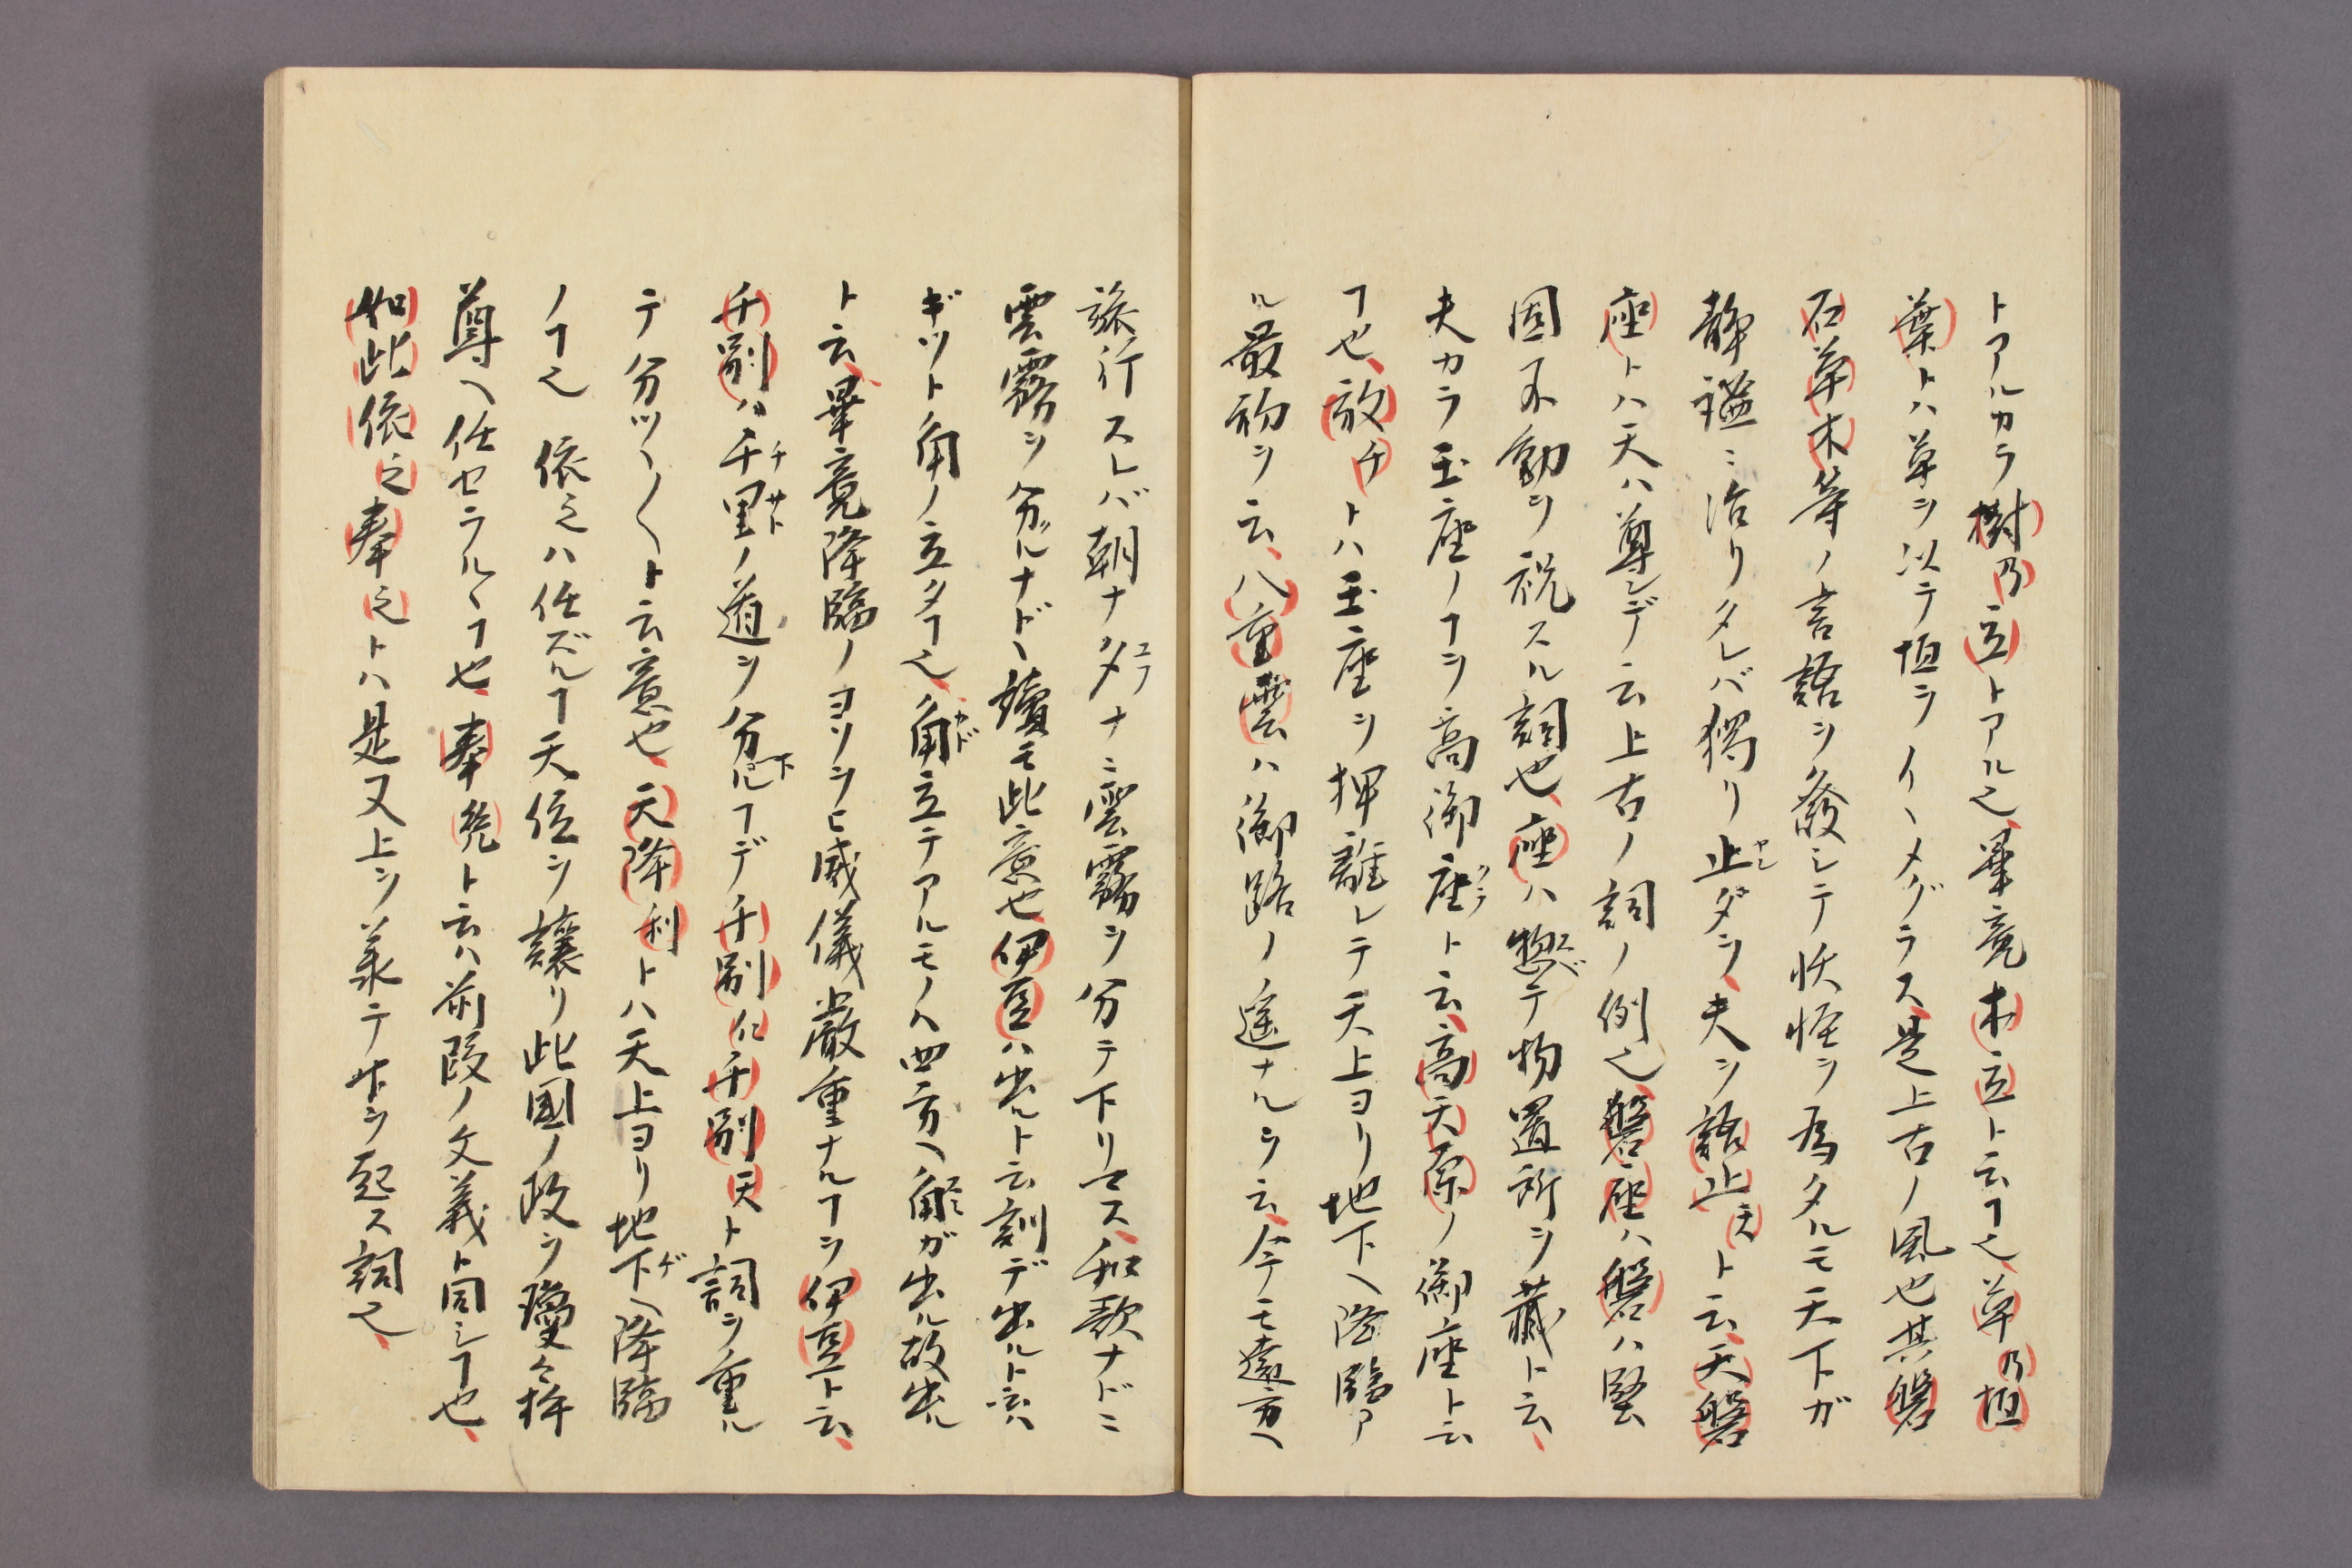 トアルカラ樹乃立トアル也畢竟木立ト云フ也草乃垣
葉トハ草ヲ以テ垣ヲイヽメグラス是上古ノ風也其磐
石草木等ノ言語ヲ発シテ妖怪ヲ為タルモ天下ガ
静謐ニ治リタレバ獨リ止ダヲ夫ヲ語止天ト云天磐
座トハ天ハ尊ンデ云上古ノ詞ノ例也磐座ハ磐ハ堅
固不動ヲ祝スル詞也座ハ惣テ物置所ヲ蔵ト云
夫カラ玉座ノヿヲ高御座ト云高天原ノ御座ト云
ヿ也放チトハ玉座ヲ押離レテ天上ヨリ地下ヘ降臨ア
ル最初ヲ云八重雲ハ御路ノ遥ナルヲ云今モ遠方ヘ
旅行スレバ朝ナ夕ナニ雲霧ヲ分テ下リマス和歌ナドニ
雲霧ヲ分ルナドヽ読モ此意也伊豆ハ出ルト云訓デ出ルト云ハ
ギツト角ノ立タヿ也角立テアルモノハ四方ヘ角ガ出ル故出ル
ト云畢竟降臨ノヨソヲヒ威儀嚴重ナルヿヲ伊豆ト云
千別ハ千里ノ道ヲ分下ルヿデ千別仁千別天ト詞ヲ重ル
テ分ツ〱ト云意也天降利トハ天上ヨリ地下ヘ降臨
ノヿ也 依之ハ任ズルヿ天位ヲ譲リ此国ノ政ヲ瓊々杵
尊ヘ任セラルヽヿ也奉幾ト云ハ前段ノ文義ト同シヿ也
如此依之奉之トハ是又上ヲ承テ下ヲ起ス詞也